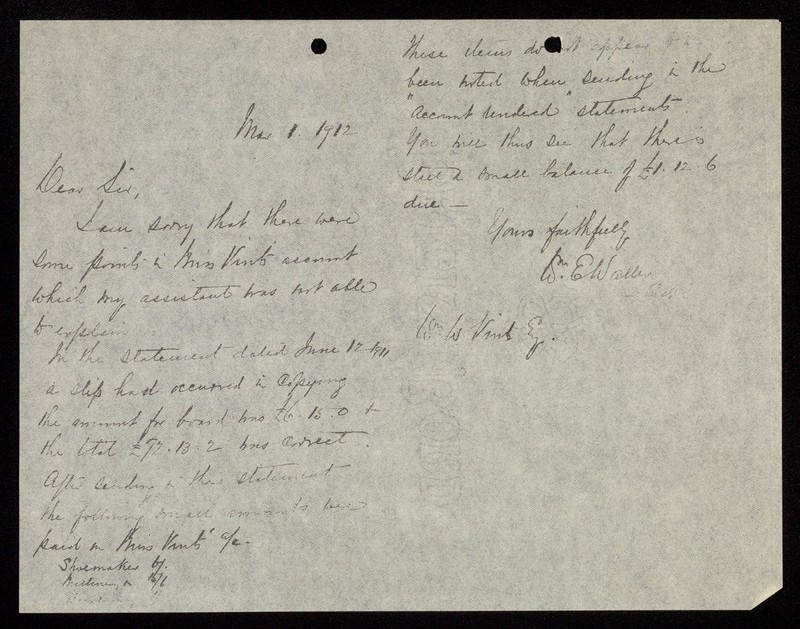 Mar 1. 1912
Dear Sir,
I am sorry that there were
some points in Miss Vints account
which my assistant was not able
to explain
In the statement dated June 17 1911
a slip had occurred in copying
the amount for board was £6.15.0 +
the total £72.13.2 was correct.
After sending in this statement
the following small amounts were
paid on Miss Vints' a/c.
Shoemaker 6/.
Millinery
These items do not appear to
been noted when sending in the
"Account rendered" statements.
You will thus see that there is
still a small balance of £1.12.6
due —
Yours faithfully
Wm. E Waller
Wm W Vint Esq.